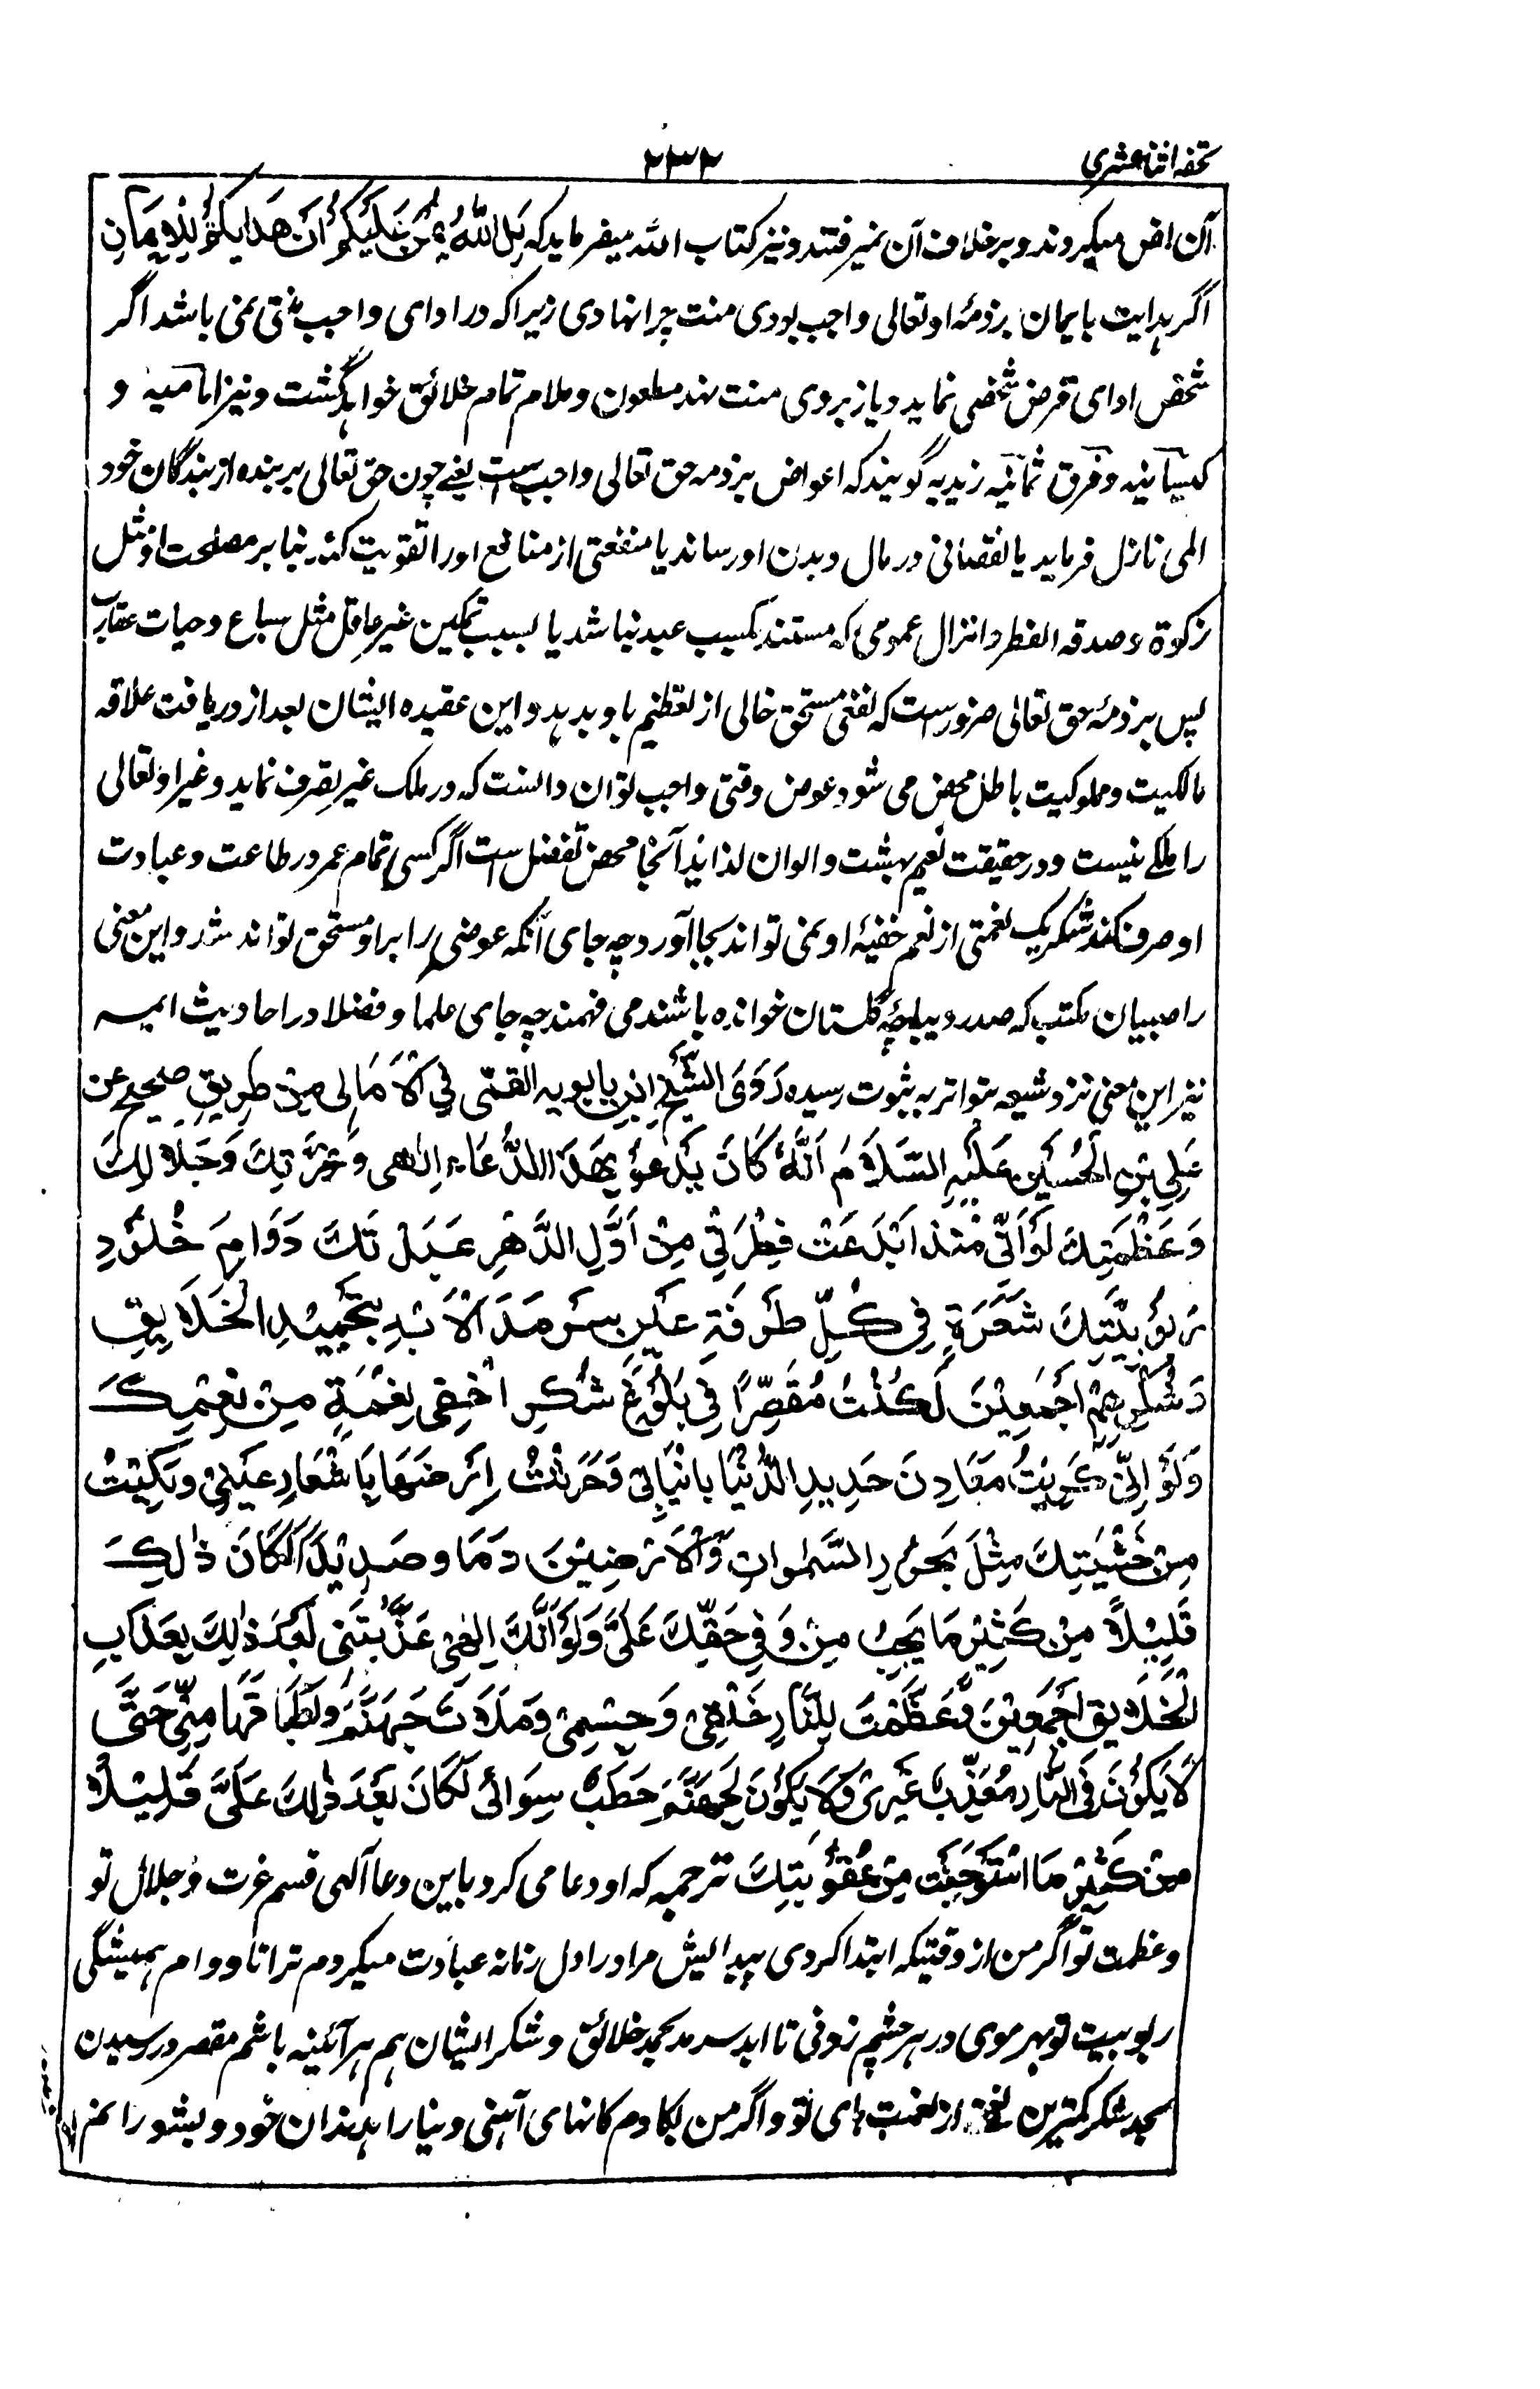 تحفه اثنا عشری
۲۳۲
آن اخص میگیروند و بر خلاف آن نمیرفتند و نیز کتاب الله میفرماید که بَلِ اللّٰهُ یَمُنُّ عَلَیْکُمْ اَنْ هَدٰىکُمْ لِلْاِیْمَانِ
اگر هدایت بایمان بر ذمۀ او تعالی واجب بودی منت چرا نهادی زیرا که در ادای واجب منتی نمی باشد اگر
شخص ادای قرض شخصی نماید و باز بروی منت نهد مطعون و ملام تمام خلائق خواهد گشت و نیز امامیه و
کیسانیه و فرق ثمانیه زیدیه گویند که اعواض بر ذمه حق تعالی واجب ست یعنی چون حق تعالی بر بنده از بندگان خود
المی نازل فرماید یا نقصانی در مال و بدن او رساند یا منفعتی از منافع او را تفویت کند بنا بر مصلحت او مثل
زکوة و صدقه الفطر و انزال عمومی که مستند بکسب عبد نباشد یا بسبب تمکین غیر عاقل مثل سباع و حیات عقارب
پس بر ذمۀ حق تعالی ضرور ست که نفعی مستحق خالی از تعظیم باو بدهد و این عقیده ایشان بعد از دریافت علاقه
مالکیت و مملوکیت باطل محض می شود عوض وقتی واجب توان دانست که در ملک غیر تصرف نماید و غیر او تعالی
را ملکے نیست و در حقیقت نعیم بهشت و الوان لذایذ آنجا محض تفضل ست اگر کسی تمام عمر در طاعت و عبادت
او صرف کند شکر یک نعمتی از نعم خفیۀ او نمی تواند بجا آورد چه جای آنکه عوضی را بر او مستحق تواند شد و این معنی
را صبیان مکتب که صدر دیباچۀ گلستان خوانده باشند می فهمند چه جای علما و فضلا در احادیث ایمه
نیز این معنی نزد شیعه متواتر به ثبوت رسیده رَوَى الشَّیْخُ ابْنُ بابویه القمّی فِی الْاَمَالِی مِنْ طَرِیْقٍ صَحِیْحٍ عَنْ
عَلِیِّ بْنِ الْحُسَیْنِ عَلَیْهِ السَّلَامُ اَنَّهُ کَانَ یَدْعُوْ بِهٰذَا الدُّعَاءِ اِلٰهِی وَعِزَّتِكَ وَجَلَالِكَ
وَعَظْمَتِكَ لَوْ اَنِّی مُنْذُ اَبْدَعْتَ فِطْرَتِی مِنْ اَوَّلِ الدَّهْرِ عَبَدْتُكَ دَوَامَ خُلُوْدِ
رَبُوْبِیَّتِكَ شَعْرَةٍ فِی کُلِّ طَرْفَةِ عَیْنٍ سَرْمَدَ الْاَبَدِ بِتَحْمِیْدِ الْخَلَایِقِ
وَشُکْرِهِمْ اَجْمَعِیْنَ لَکُنْتُ مُقَصِّرًا فِی بُلُوْغِ شُکْرِ اَخْفٰی نِعْمَةٍ مِنْ نِعْمِكَ
وَلَوْ اِنِّی کَرَبْتُ مَعَادِنَ حَدِیدِ الدُّنْیَا بِاَنْیَابِی وَحَرَثْتُ اَرْضَهَا بِاَشْعَارِ عَیْنِیْ وَبَکَیْتُ
مِنْ خَشْیَتِكَ مِثْلَ بَحُوْرِ السَّمٰوَاتِ وَالْاَرْضِیْنَ دَمًا وَصَدِیْدًا لَکَانَ ذٰلِكَ
قَلِیْلًا مِنْ کَثِیْرِ مَا یَجِبُ مِنْ وَفِی حَقِّكَ عَلَیَّ وَلَوْ اَنَّكَ اِلٰهِی عَذَّبْتَنِی بَعْدَ ذٰلِكَ بِعَذَابِ
الْخَلَایِقِ اَجْمَعِیْنَ وَعَظَّمْتَ لِلنَّارِ خَلْقِیْ وَجِسْمِیْ وَمَلَأْتَ جَهَنَّمَ وَاَطْبَاقَهَا مِنِّی حَتّٰی
لَا یَکُوْنَ فِی النَّارِ مُعَذَّبٌ غَیْرِی وَلَا یَکُوْنَ لِجَهَنَّمَ حَطَبٌ سِوَائِی لَکَانَ بَعْدَ ذٰلِكَ عَلَیَّ قَلِیْلًا
مِنْ کَثِیْرِ مَا اسْتَوْجَبْتُ مِنْ عُقُوْبَتِكَ ترجمه که او دعا می کرد باین دعا آلهی قسم عزت و جلال تو
و عظمت تو اگر من از وقتیکه ابتدا کردی پیدایش مرا در اول زمانه عبادت میکردم ترا تا دوام همیشگی
ربوبیت تو بهر موی در هر چشم زدنی تا ابد سرمد بحمد خلائق و شکر ایشان هم هر آئینه باشم مقصر در رسیدن
بحد شکر کمترین نعمت از نعمت های تو و اگر من بکاوم کانهای آهنی دنیا را بدندان خود و بشورانم